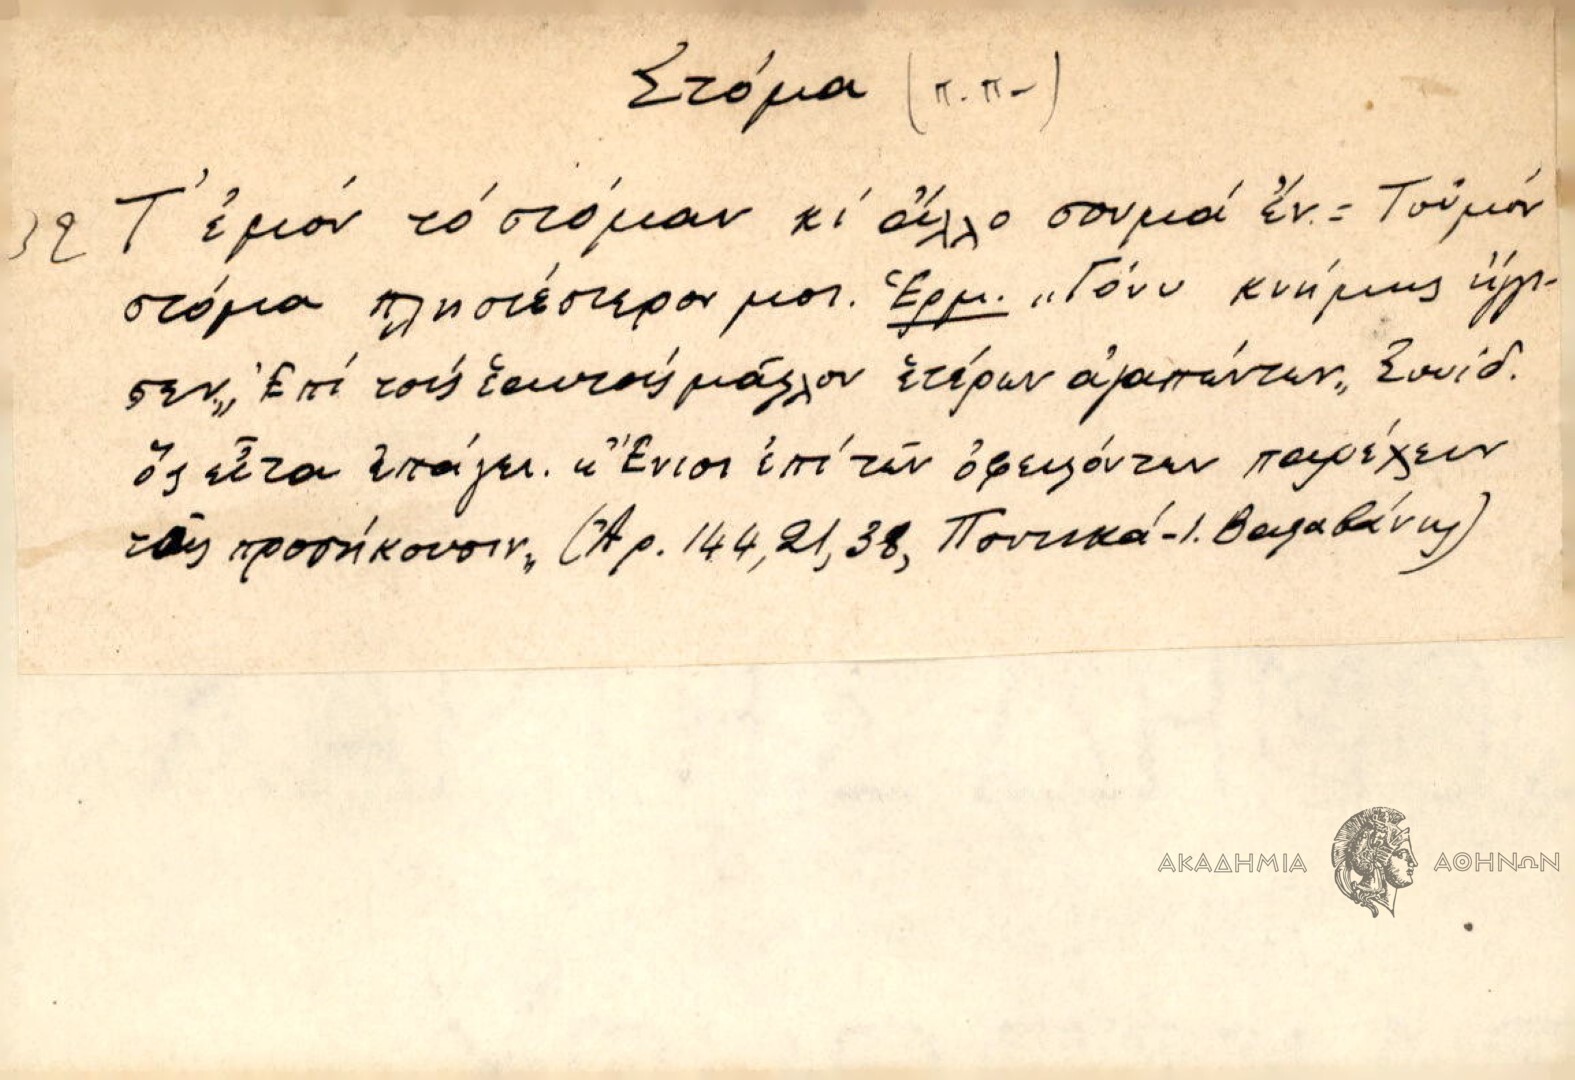 Στόμα (π.π-)
32 Τ' ἐμόν τό στόμαν κι ἄλλο σουμά ἔν. = Τοὐμόν
στόμα πλησιέστερον μοι. Ἑρμ. "Γόνυ κνήμης ἤγγι-
σεν" Ἐπί τοῖς ἑαυτούς μᾶλλον ἑτέρων ἀγαπώντων" Σουίδ.
ὅς εἶτα ἐπάγει. "Ἔνιοι ἐπί τῶν ὀφειλόντων παρέχειν
τοῖς προσήκουσιν" (Ἀρ. 144, 21, 38, Ποντικά - Ι. Βαλαβάνης)
ΑΚΑΔΗΜΙΑ ΑΘΗΝΩΝ